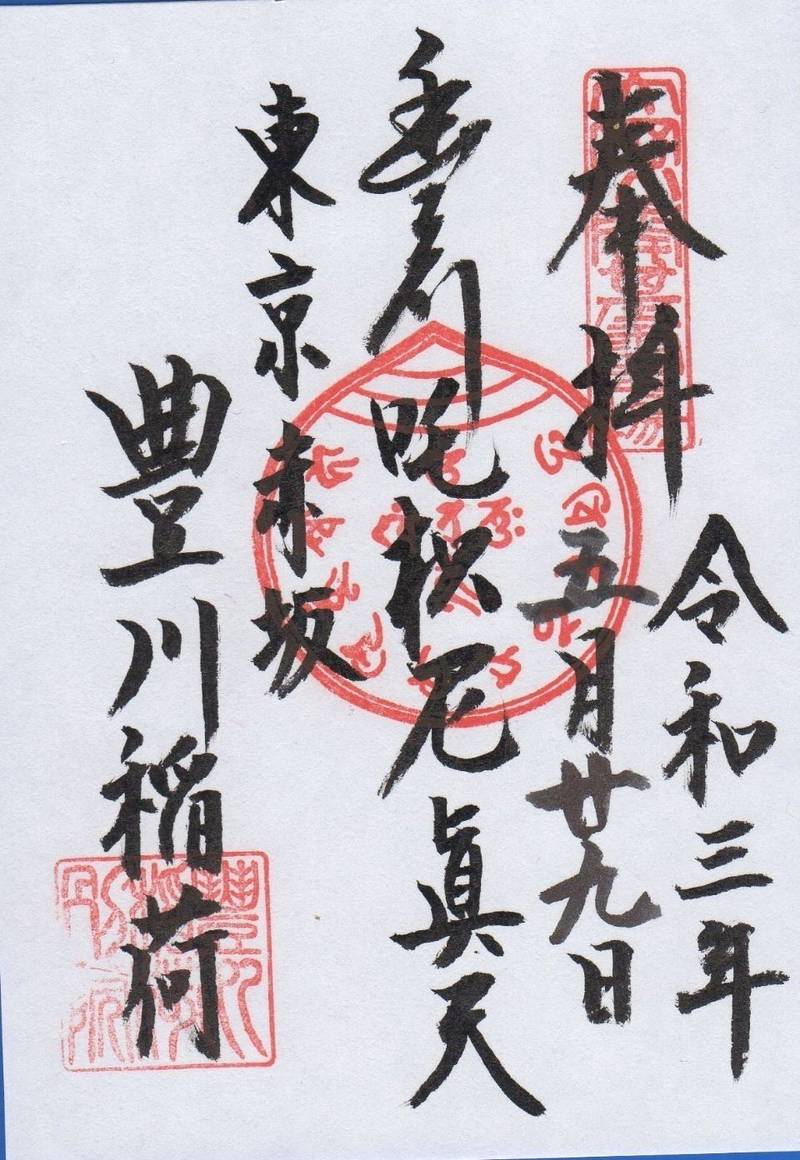 奉拝
令和三年
五月廿九日
豊川吒枳尼眞天
東京赤坂
豊川稲荷